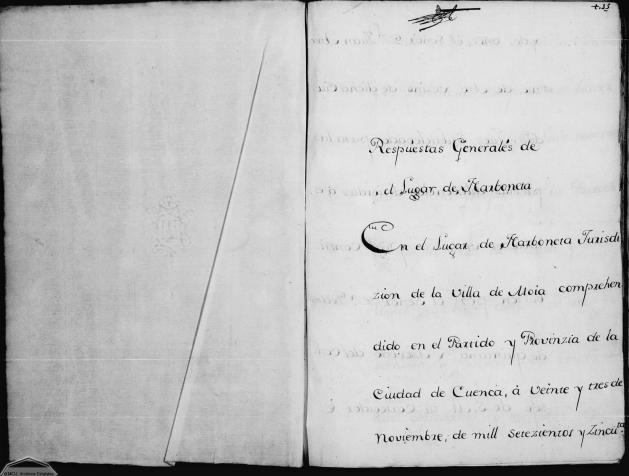 Respuestas Generales de
el Lugar de Narboneta
En el Lugar de Narboneta Jurisdi
zion de la Villa de Moia comprehen
dido en el Partido y Provinzia de la
Ciudad de Cuenca, â veinte y tres de
Noviembre, de mill setezientos y Zincuta